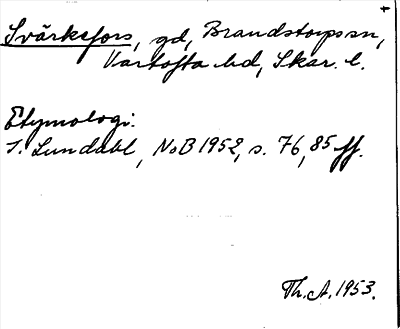 Svärkefors, gd, Brandstorps sn,
Vartofta hd, Skar. l.
Etymologi:
I. Lundahl, NoB 1952, s. 76, 85 ff.
Th. A. 1953.